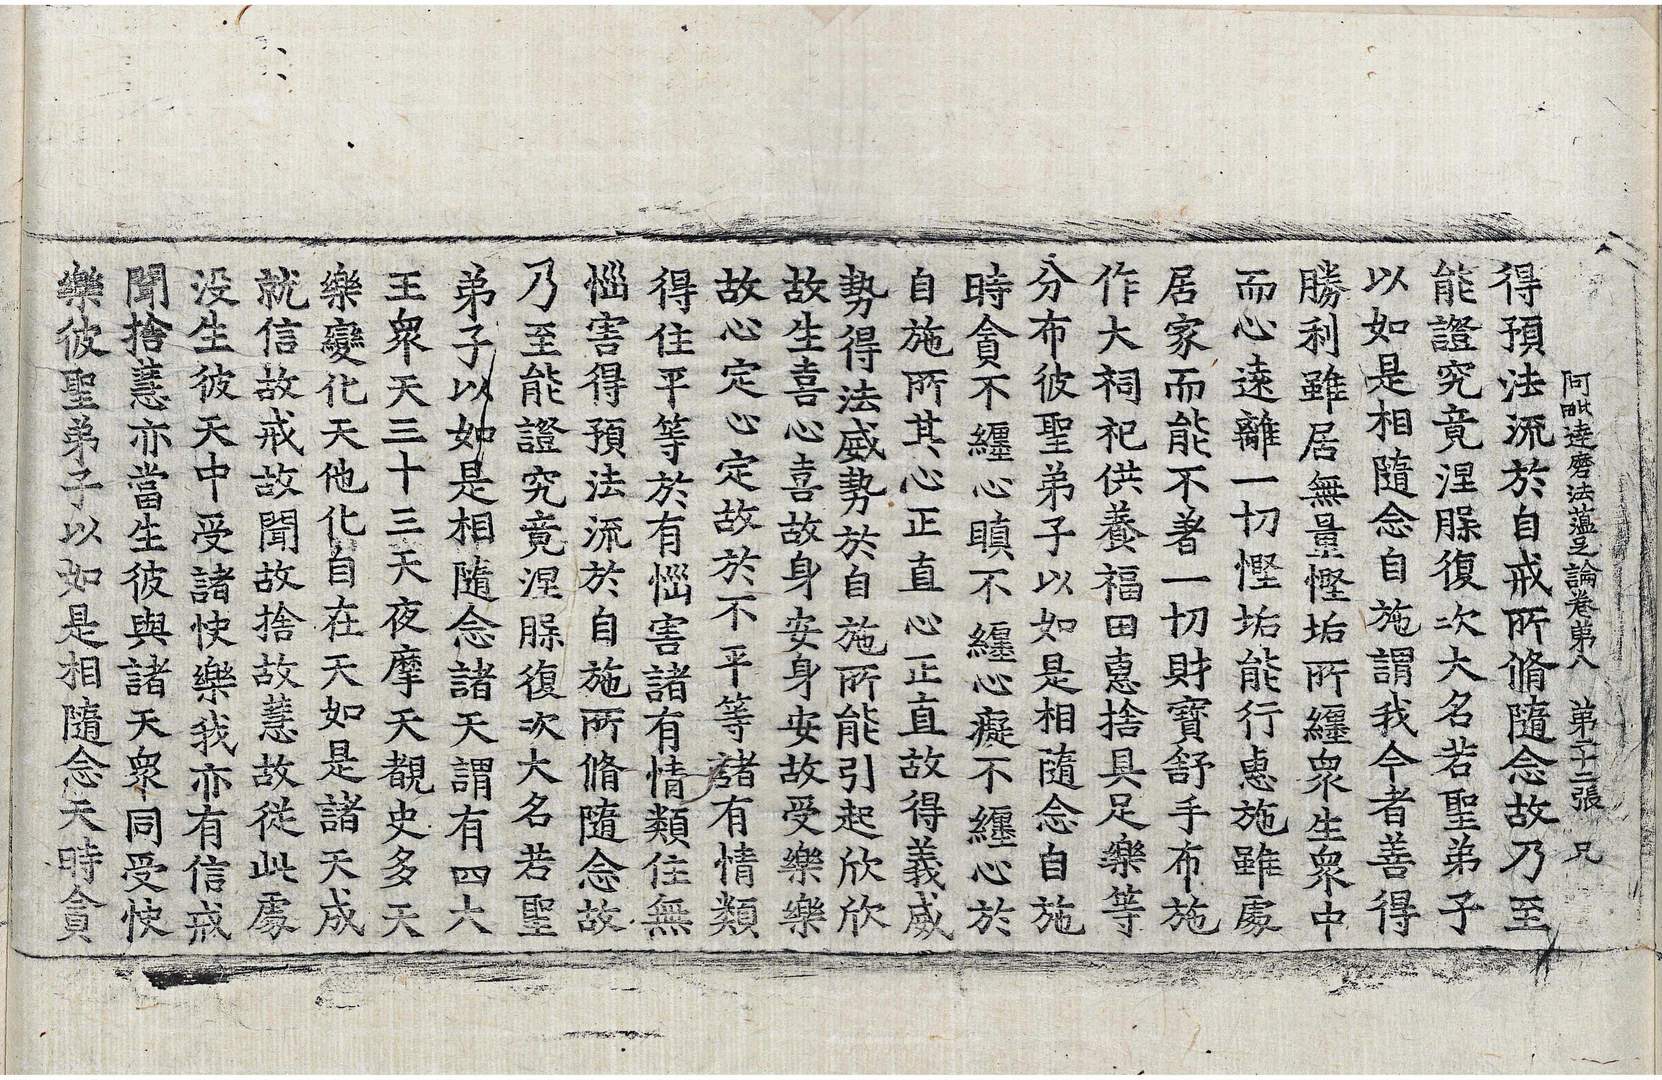 阿毗達磨法蘊足論卷第八 第十二張 兄
得預法流於自戒所脩隨念故乃至
能證究竟涅槃復次大名若聖弟子
以如是相隨念自施謂我今者善得
勝利雖居無量慳垢所纏衆生衆中
而心遠離一切慳垢能行惠施雖處
居家而能不著一切財寶舒手布施
作大祠祀供養福田惠捨具足樂等
分布彼聖弟子以如是相隨念自施
時貪不纏心瞋不纏心癡不纏心於
自施所其心正直心正直故得義威
勢得法威勢於自施所能引起欣欣
故生喜心喜故身安身安故受樂樂
故心定心定故於不平等諸有情類
得住平等於有惱害諸有情類住無
惱害得預法流於自施所脩隨念故
乃至能證究竟涅槃復次大名若聖
弟子以如是相隨念諸天謂有四大
王衆天三十三天夜摩天覩史多天
樂變化天他化自在天如是諸天成
就信故戒故聞故捨故慧故從此處
没生彼天中受諸快樂我亦有信戒
聞捨慧亦當生彼與諸天衆同受快
樂彼聖弟子以如是相隨念天時貪